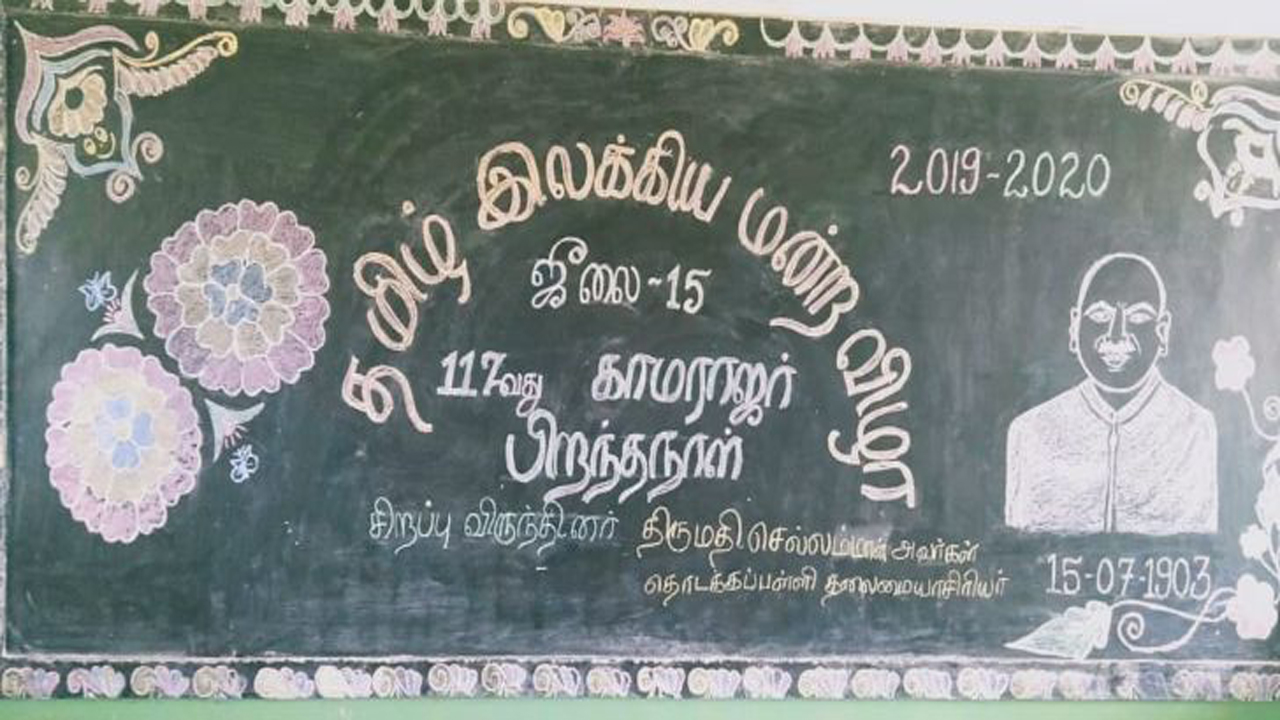 தமிழ் இலக்கிய மன்ற விழா
2019-2020
ஜீலை-15
117வது காமராஜர்
பிறந்தநாள்
சிறப்பு விருந்தினர் திருமதி.செல்லம்மாள் அவர்கள்
தொடக்கப்பள்ளி தலைமையாசிரியர்
15-07-1903